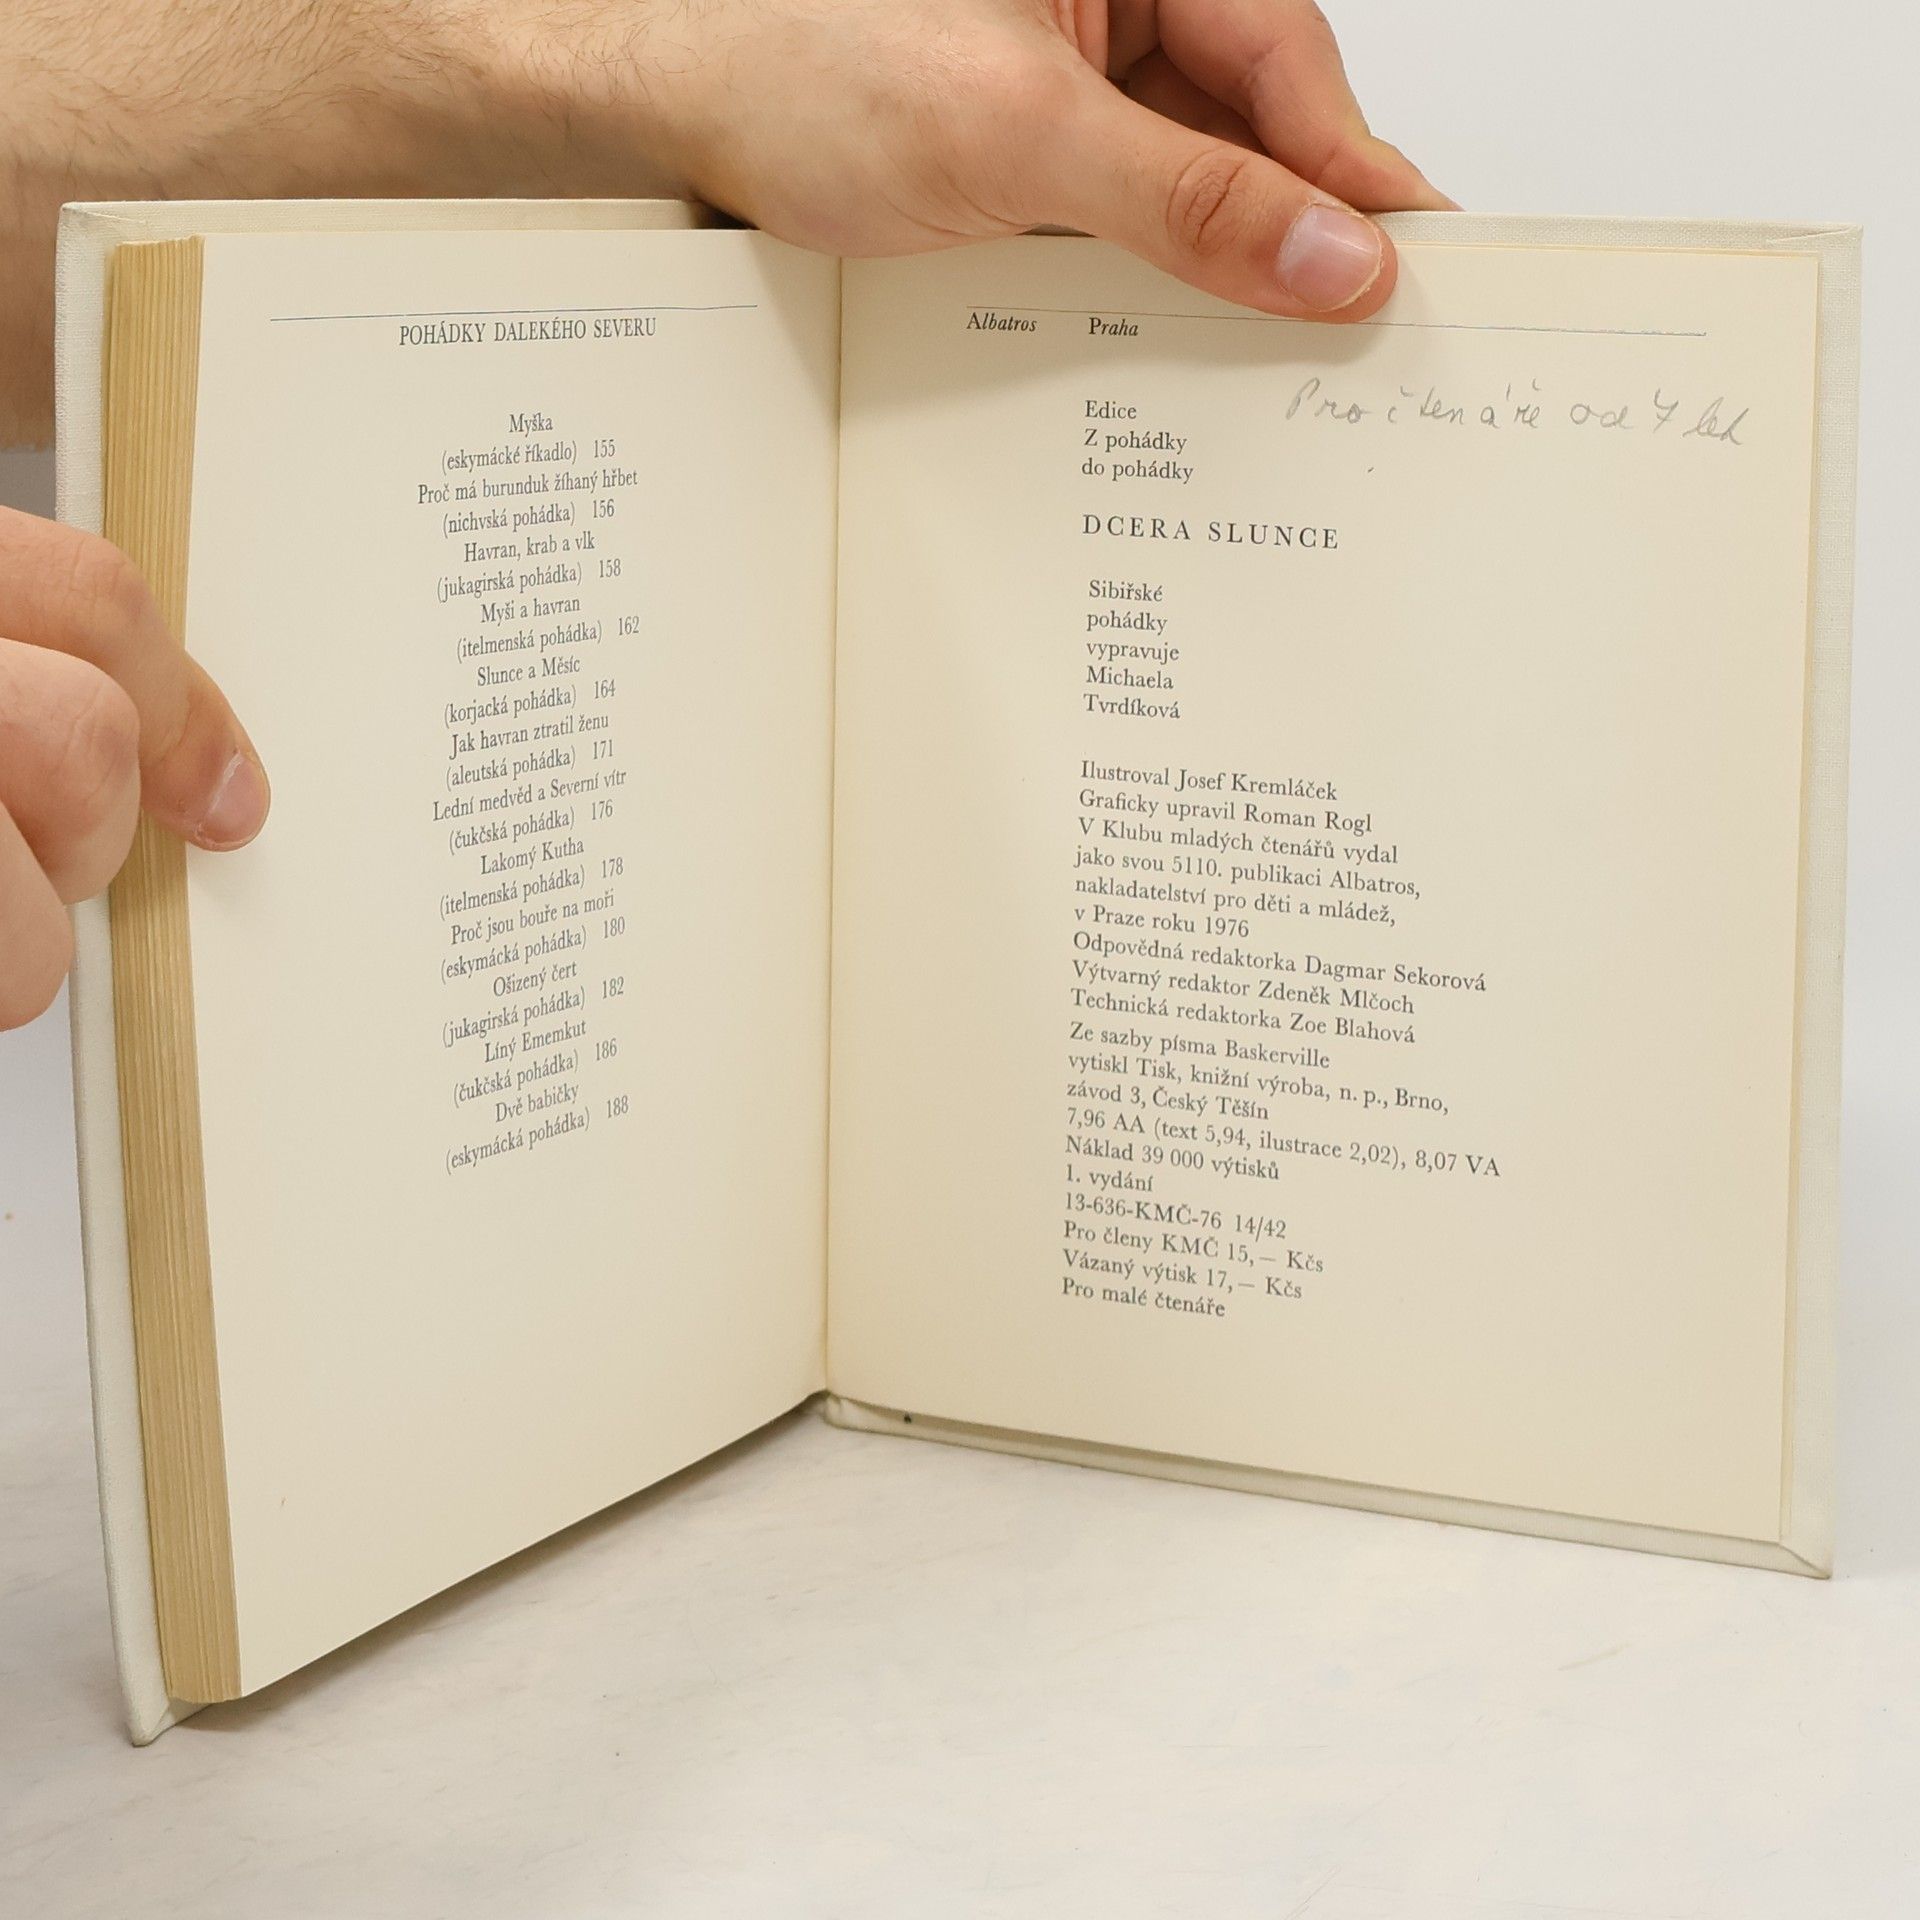 POHÁDKY DALEKÉHO SEVERU
Myška
(eskymácké říkadlo) 155
Proč má burunduk žíhaný hřbet
(nichvská pohádka) 156
Havran, krab a vlk
(jukagirská pohádka) 158
Myši a havran
(itelmenská pohádka) 162
Slunce a Měsíc
(korjacká pohádka) 164
Jak havran ztratil ženu
(aleutská pohádka) 171
Lední medvěd a Severní vítr
(čukčská pohádka) 176
Lakomý Kutha
(itelmenská pohádka) 178
Proč jsou bouře na moři
(eskymácká pohádka) 180
Ošizený čert
(jukagirská pohádka) 182
Líný Ememkut
(čukčská pohádka) 186
Dvě babičky
(eskymácká pohádka) 188
Albatros Praha
Pro čtenáře od 7 let
Edice
Z pohádky
do pohádky
DCERA SLUNCE
Sibiřské
pohádky
vypravuje
Michaela
Tvrdíková
Ilustroval Josef Kremláček
Graficky upravil Roman Rogl
V Klubu mladých čtenářů vydal
jako svou 5110. publikaci Albatros,
nakladatelství pro děti a mládež,
v Praze roku 1976
Odpovědná redaktorka Dagmar Sekorová
Výtvarný redaktor Zdeněk Mlčoch
Technická redaktorka Zoe Blahová
Ze sazby písma Baskerville
vytiskl Tisk, knižní výroba, n. p., Brno,
závod 3, Český Těšín
7,96 AA (text 5,94, ilustrace 2,02), 8,07 VA
Náklad 39 000 výtisků
1. vydání
13-636-KMČ-76 14/42
Pro členy KMČ 15,— Kčs
Vázaný výtisk 17,— Kčs
Pro malé čtenáře